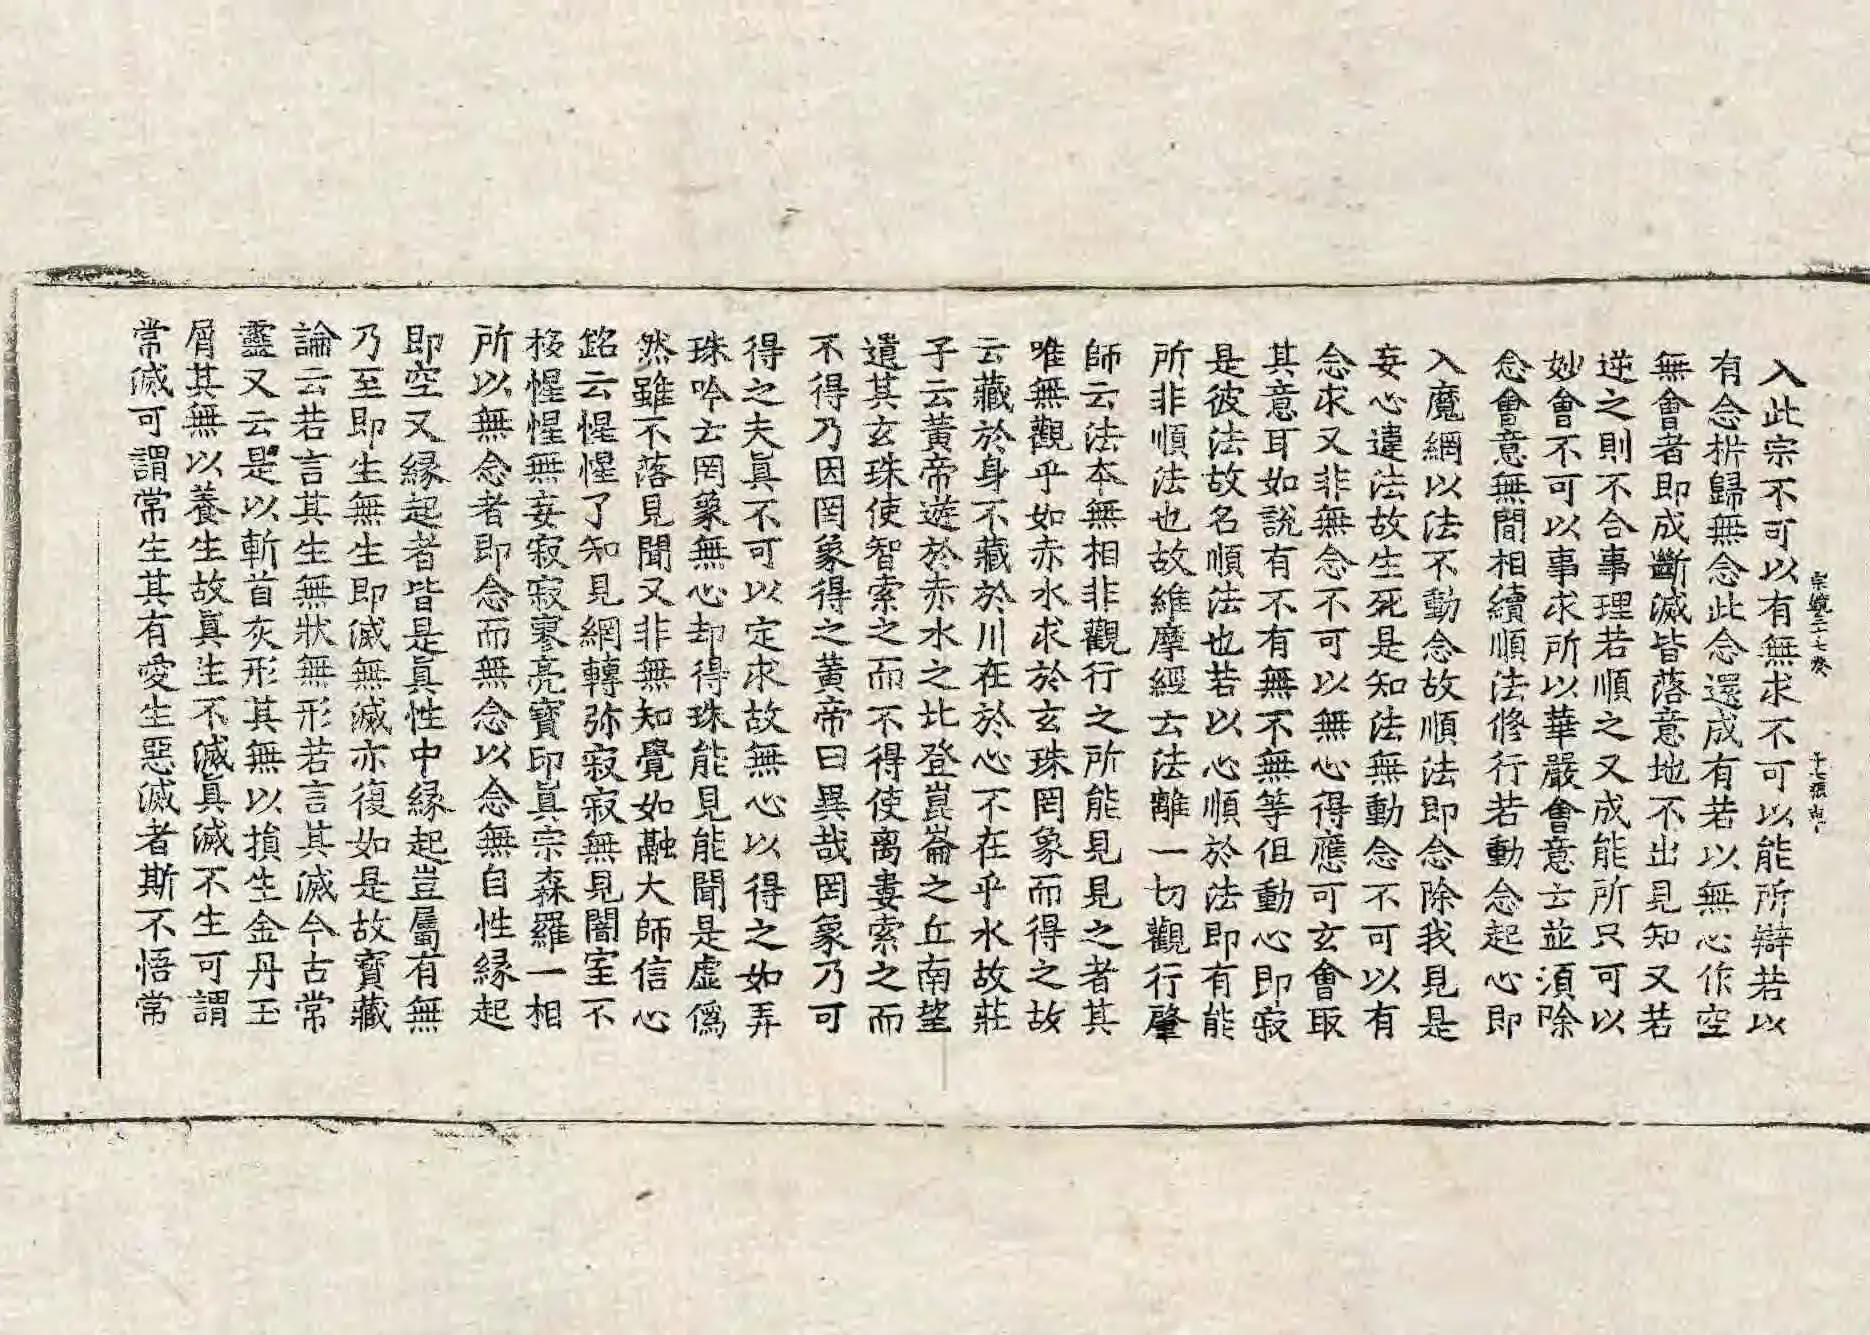 入此宗不可以有無求不可以能所辯若以
有念析歸無念此念還成有若以無心作空
無會者即成斷滅皆落意地不出見知又若
逆之則不合事理若順之又成能所只可以
妙會不可以事求所以華嚴會意云並須除
念會意無間相續順法修行若動念起心即
入魔網以法不動念故順法即念除我見是
妄心違法故生死是知法無動念不可以有
念求又非無念不可以無心得應可玄會取
其意耳如說有不有無不無等但動心即寂
是彼法故名順法也若以心順於法即有能
所非順法也故維摩經云法離一切觀行肇
師云法本無相非觀行之所能見見之者其
唯無觀乎如赤水求於玄珠罔象而得之故
云藏於身不藏於川在於心不在乎水故莊
子云黃帝遊於赤水之北登崑崙之丘南望
遺其玄珠使智索之而不得使离婁索之而
不得乃因罔象得之黃帝曰異哉罔象乃可
得之夫眞不可以定求故無心以得之如弄
珠吟云罔象無心却得珠能見能聞是虛僞
然雖不落見聞又非無知覺如融大師信心
銘云惺惺了知見網轉弥寂寂無見闇室不
移惺惺無妄寂寂寥亮寶印眞宗森羅一相
所以無念者即念而無念以念無自性緣起
即空又緣起者皆是眞性中緣起豈屬有無
乃至即生無生即滅無滅亦復如是故寶藏
論云若言其生無狀無形若言其滅今古常
靈又云是以斬首灰形其無以損生金丹玉
屑其無以養生故眞生不滅眞滅不生可謂
常滅可謂常生其有愛生惡滅者斯不悟常